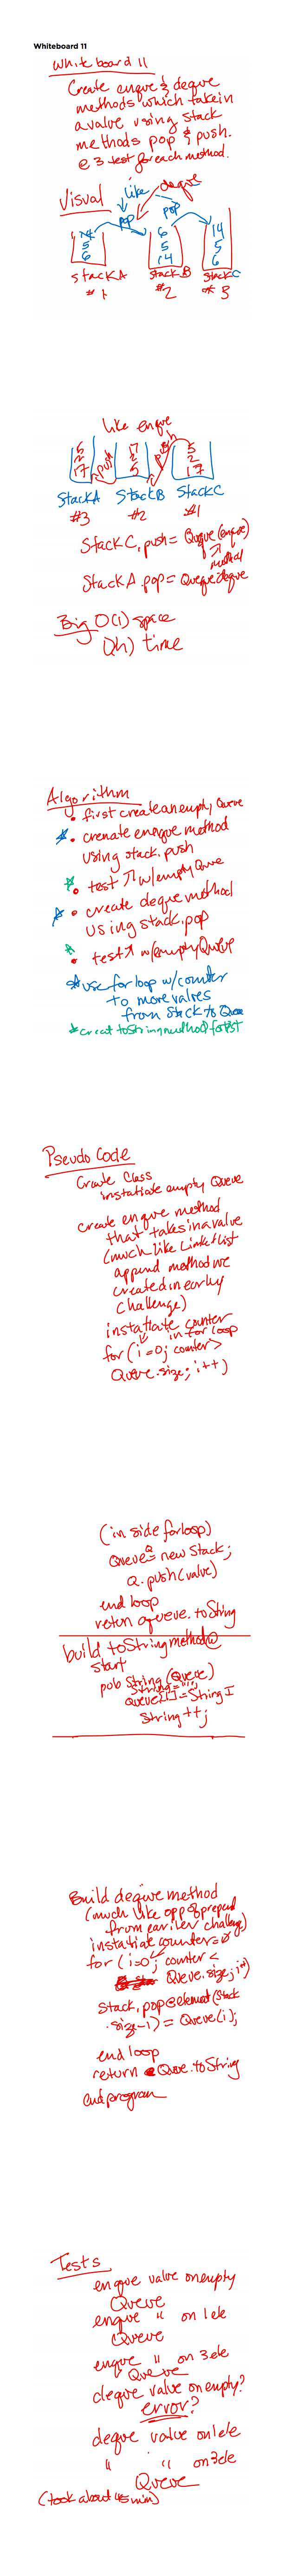 Whiteboard 11
White board 11
Create enque & deque
methods which take in
a value using stack
methods pop & push.
@ 3 test for each method.
Visual
like
deque
pop
pop
14
5
6
6
5
14
14
5
6
StackA
StackB
StackC
#1
#2
#3
like enque
5
2
17
push
17
2
5
5
2
17
StackA StackB StackC
#3 #2 #1
StackC.push = Queue(enque)
method
StackA.pop = Queue deque
Big O(1) space
O(n) time
Algorithm
• first create an empty Queue
• crenate enqque method
using stack.push
• test ↗ w/empty Queue
• create deque method
using stack.pop
• test ↗ w/empty Queue
*use for loop w/counter
to move values
from Stack to Queue
*creat toString method for test
Pseudo Code
Create Class
instatiate empty Queue
create enque method
that takes in a value
(much like Linked list
append method we
created in earley
challenge)
instatiate counter
in for loop
for (i=0; counter>
Queue.size; i++)
(in side for loop)
Queue Q = new Stack;
Q.push(value)
end loop
return queue.toString
build toString method
start
pub String (Queue)
String = "";
Queue[i] = String I
String ++;
Build deque method
(much like opp of prepend
from eariler challenge)
instatiat counter = 0
for (i=0; counter <
Queue.size; i++)
Stack.pop @ element (Stack
.size-1) = Queue(i);
end loop
return Queue.toString
end program
Tests
enque value on empty
Queue
enque " on 1 ele
Queue
enque " on 3 ele
Queue
deque value on empty?
error?
deque value on 1 ele
" " on 3 ele
Queue
(took about 45 min)